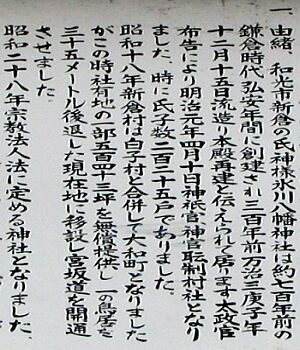 一、由緒、和光市新倉の氏神様氷川八幡神社は約七百年前の
鎌倉時代弘安年間に創建され三百年前万治三庚子年
十二月十五日流造り本殿再建と伝えられて居ります。太政官
布告により明治元年四月十日神祇官、神官取制村社となり
ました。時に氏子数二百二十五戸でありました。
昭和十八年新倉村は白子村と合併して大和町となりました
がこの時社有地の一部五百四十三坪を無償提供し一の鳥居を
三十五メートル後退した現在地に移設し宮坂道を開通
させました。
昭和二十八年宗教法人法に定める神社となりました。